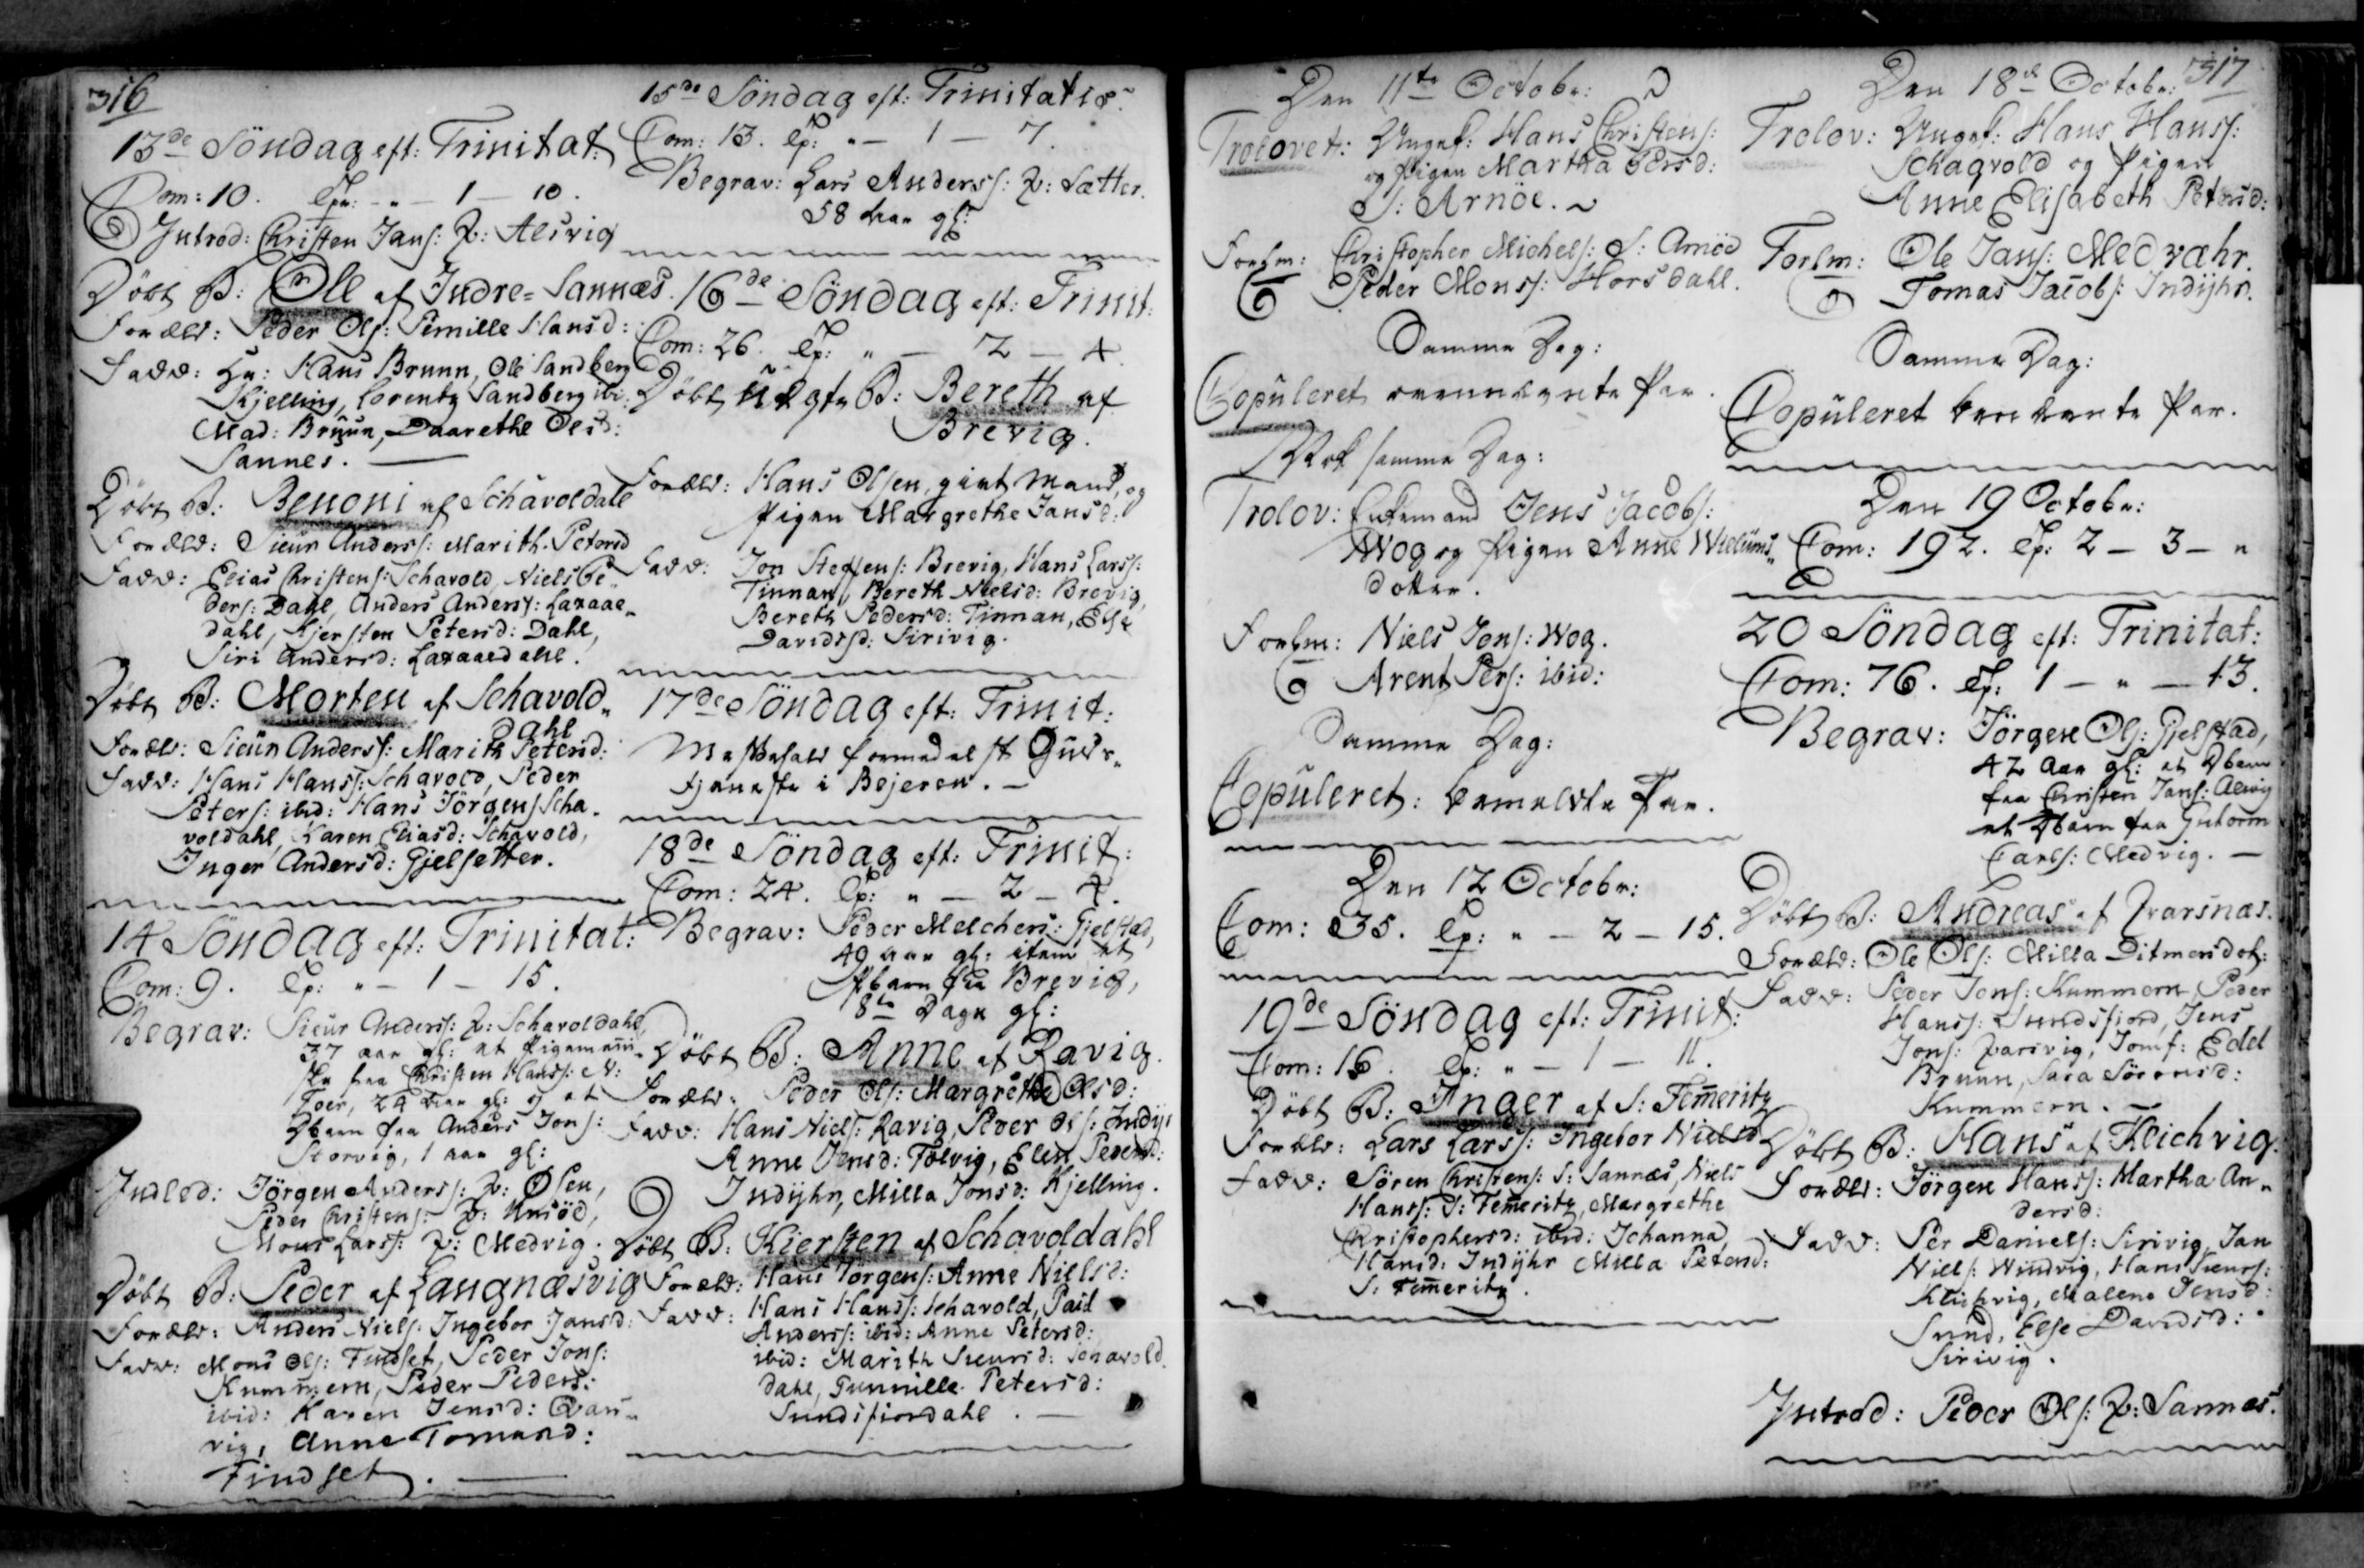 316
13de Söndag eft: Trinitat:
Com: 10. Ep: - " - 1 - 10.
Introd: Christen Jans: Q: Alsvig
Döbt B: Ole af Indre-Sannæs.
Foræld: Peder Ols: Pernille Hansd:
Fadd: Hr: Hans Brunn, Ole Sandberg
Kjelling, Lorentz Sandberg ibi:
Mad: Bruun, Daarethe Olsd:
Sannes.
Döbt B: Benoni af Schavoldahl
Foræld: Sieur Anders: Marith Petersd
Fadd: Elias Christens: Schavold, Niels Pe-
ders: Dahl, Anders Anders: Laxaae-
dahl, Kjersten Petersd: Dahl,
Siri Andersd: Laxaaedahl.
Döbt B: Morten af Schavold-
dahl
Foræld: Sieur Anders: Marith Petersd:
Fadd: Hans Hanss: Schavold, Peder
Peters: ibid: Hans Jörgens Scha-
voldahl, Karen Eliasd: Schavold,
Inger Andersd: Gjelsetter.
14 Söndag eft: Trinitat:
Com: 9. Ep: " - 1 - 15.
Begrav: Sieur Anders: P: Schavoldahl,
37 aar gl: et Pigemenni-
ske fra Christen Hanss: N:
Foer, 24 aar gl: og et
Dbarn fra Anders Jons:
Storvig, 1 aar gl:
Indled: Jörgen Anders: Q: Ölen,
Peder Christens: Q:
Mons Larss: Q: Medvig.
Döbt B: Peder af Langnæsvig
Foræld: Anders Niels: Ingebor Jansd:
Fadd: Mons Ols: Findset, Peder Jons:
Kummern, Peder Peders:
ibid: Karen Jensd: Qvar-
vig, Anne Tomasd:
Findset.
15de Söndag eft: Trinitatis.
Com: 13. Ep: " - 1 - 7.
Begrav: Lars Anderss: P: Sætter.
58 aar gl:
16de Söndag eft: Trinit:
Com: 26. Ep: " - 2 - 4
Döbt uægte B: Bereth af
Brevig.
Foræld: Hans Olsen, givt Mand, og
Pigen Margrethe Jansd:
Fadd: Jon Steffens: Brevig, Hans Larss:
Finnan, Bereth Nielsd: Brevig,
Bereth Pedersd: Finnan, Else
Davidsd: Sirivig.
17de Söndag eft: Trinit:
Messefald formedelst Guds-
tjeneste i Bejeren.
18de Söndag eft: Trinit:
Com: 24. Ep: " - 2 - 4.
Begrav: Peder Melchers: Gjelstad,
49 aar gl: item et
Pbarn fra Brevig,
8te Dage gl:
Döbt B: Anne af Ravig.
Foræld: Peder Ols: Margrethe Olsd:
Fadd: Hans Niels: Ravig, Peder Ols: Indyr
Anne Jensd: Tolvig, Elen Pedersd:
Indyhr, Milla Jonsd: Kjelling.
Döbt B: Kiersten af Schavoldahl
Foræld: Hans Jörgens: Anne Nielsd:
Fadd: Hans Hanss: Schavold, Paul
Anderss: ibid: Anne Petersd:
ibid: Marith Sieursd: Schavold
dahl, Gunnille Petersd:
Sundsfiordahl.
Den 11te Octobr:
Trolovet: Ungef: Hans Christens:
og Pigen Martha Persd:
S: Arnöe.
Forlm: Christopher Michels: S: Arnöe
Peder Monss: Horsdahl.
Samme Dag:
Copuleret ovennævnte Par.
Nok samme Dag:
Trolov: Enkemand Jens Jacobs:
Wog og Pigen Anne Wielums-
dotter.
Forlm: Niels Jons: Wog.
Arent Pers: ibid:
Samme Dag:
Copuleret: bemeldte Par.
Den 12 Octobr:
Com: 235. Ep: " - 2 - 15.
19de Söndag eft: Trinit:
Com: 16. Ep: " - 1 - 11.
Döbt B: Inger af S: Femeritz
Foræld: Lars Larss: Ingebor Nielsd
Fadd: Sören Christens: S: Sannæs, Niels
Hanss: S: Femeritz, Margrethe
Christophersd: ibid: Johanna
Hansd: Indyhr Milla Petersd:
S: Femeritz.
317
Den 18de Octobr:
Trolov: Ungef: Hans Hanss:
Schagvold og Pigen
Anne Elisabeth Petersd:
Forlm: Ole Jans: Medvæhr.
Tomas Jacobs: Indyhr.
Samme Dag:
Copuleret benævnte Par.
Den 19 Octobr:
Com: 192. Ep: 2 - 3 - "
20 Söndag eft: Trinitat:
Com: 76. Ep: 1 - " - 13.
Begrav: Jörgen Ols: Gjelstad,
42 aar gl: et Dbarn
fra Christen Jans: Alsvig
et Dbarn fra Gutorm
Carls: Medvig.
Döbt B: Andreas af Qvarsnæs.
Foræld: Ole Ols: Milla Ditmersdot:
Fadd: Peder Jons: Kummern Peder
Hanss: Sundsfiord, Jens
Jons: Qvarvig, Jomf: Edel
Bruun, Sara Sörensd:
Kummern.
Döbt B: Hans af Kleichvig.
Foræld: Jörgen Hanss: Martha An-
dersd:
Fadd: Per Daniels: Sirivig, Jan
Niels: Windvig, Hans Sieurs:
Kleichvig, Malene Jensd:
Sund, Else Davidsd:
Sirivig.
Introd: Peder Ols: Q: Sannæs.